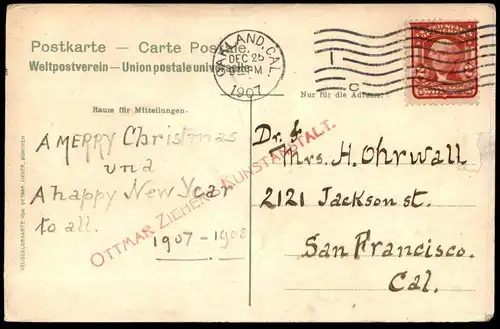 Postkarte – Carte Postale.
Weltpostverein – Union postale universelle.
OAKLAND, CAL.
DEC 25
PM
1907
1
C
Raum für Mitteilungen.
Nur für die Adresse.
A MERRY Christmas
und
A happy New Year
to all.
1907 – 1908
OTTMAR ZIEHER KUNSTANSTALT.
Dr. &
Mrs. H. Ohrwall
2121 Jackson st.
San Francisco.
Cal.
OTTMAR ZIEHER, MÜNCHEN